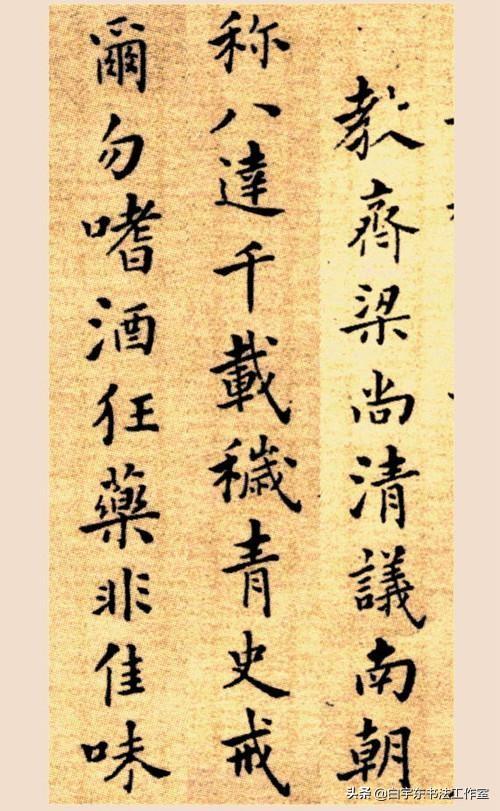 教齊梁尚清議南朝
称八達千載穢青史戒
爾勿嗜酒狂藥非佳味
头条@白宇东书法工作室